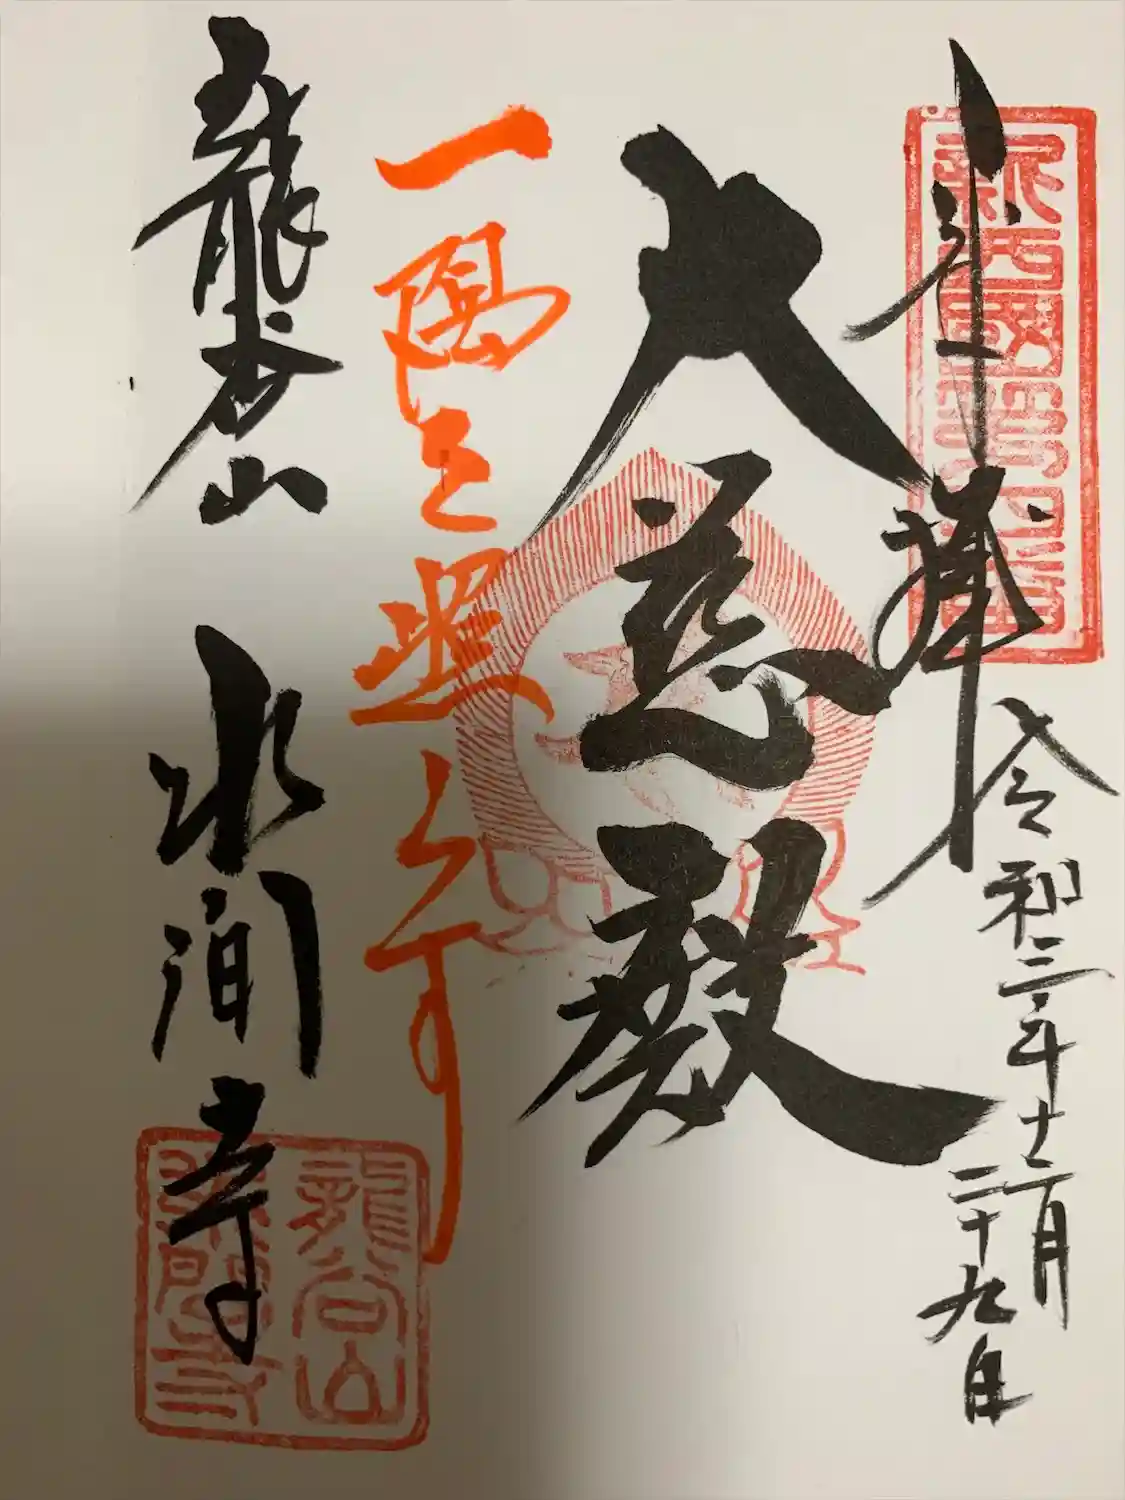 新西國第四番
奉拝
令和三年十二月
二十九日
大慈殿
一隅を照らす
龍谷山 水間寺
龍谷山
水間寺